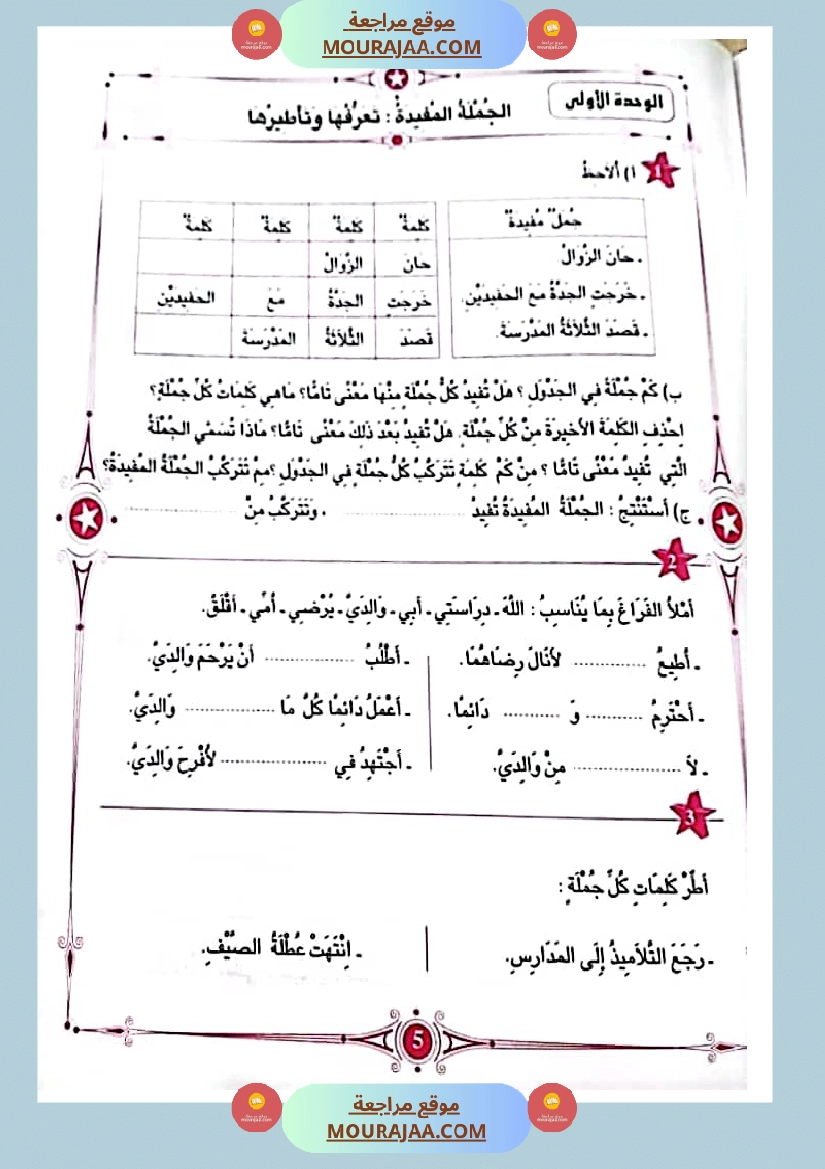 موقع مراجعة
MOURAJAA.COM
الوحدة الأولى
الجُمْلَةُ المُفِيدَةُ : تَعَرُّفُهَا وَتَأْطِيرُهَا
1
أ) أُلاَحِظُ
جُمَلٌ مُفِيدَةٌ
كَلِمَةٌ كَلِمَةٌ كَلِمَةٌ كَلِمَةٌ
. حَانَ الزَّوَالُ.
حَانَ الزَّوَالُ
. خَرَجَتِ الجَدَّةُ مَعَ الحَفِيدَيْنِ.
خَرَجَتِ الجَدَّةُ مَعَ الحَفِيدَيْنِ
. قَصَدَ الثَّلاَثَةُ المَدْرَسَةَ.
قَصَدَ الثَّلاَثَةُ المَدْرَسَةَ
ب) كَمْ جُمْلَةً فِي الجَدْوَلِ ؟ هَلْ تُفِيدُ كُلُّ جُمْلَةٍ مِنْهَا مَعْنًى تَامًّا؟ مَاهِي كَلِمَاتُ كُلِّ جُمْلَةٍ؟
اِحْذِفِ الكَلِمَةَ الأَخِيرَةَ مِنْ كُلِّ جُمْلَةٍ. هَلْ تُفِيدُ بَعْدَ ذَلِكَ مَعْنًى تَامًّا؟ مَاذَا تُسَمَّى الجُمْلَةُ
الَّتِي تُفِيدُ مَعْنًى تَامًّا ؟ مِنْ كَمْ كَلِمَةٍ تَتَرَكَّبُ كُلُّ جُمْلَةٍ فِي الجَدْوَلِ ؟مِمْ تَتَرَكَّبُ الجُمْلَةُ المُفِيدَةُ؟
ج) أَسْتَنْتِجُ : الجُمْلَةُ المُفِيدَةُ تُفِيدُ .................... . وَتَتَرَكَّبُ مِنْ ....................
2
أَمْلَأُ الفَرَاغَ بِمَا يُنَاسِبُ : اللهَ ـ دِرَاسَتِي ـ أَبِي ـ وَالِدَيَّ ـ يُرْضِي ـ أُمِّي ـ أَقْلَقُ.
ـ أُطِيعُ ............ لأَنَالَ رِضَاهُمَا.
ـ أَطْلُبُ ............ أَنْ يَرْحَمَ وَالِدَيَّ.
ـ أَحْتَرِمُ .......... وَ .......... دَائِمًا.
ـ أَعْمَلُ دَائِمًا كُلَّ مَا ............ وَالِدَيَّ.
ـ لاَ ................ مِنْ وَالِدَيَّ.
ـ أَجْتَهِدُ فِي ................ لأُفْرِحَ وَالِدَيَّ.
3
أُطِّرُ كَلِمَاتِ كُلِّ جُمْلَةٍ :
ـ رَجَعَ التَّلاَمِيذُ إِلَى المَدَارِسِ.
ـ اِنْتَهَتْ عُطْلَةُ الصَّيْفِ.
5
موقع مراجعة
MOURAJAA.COM